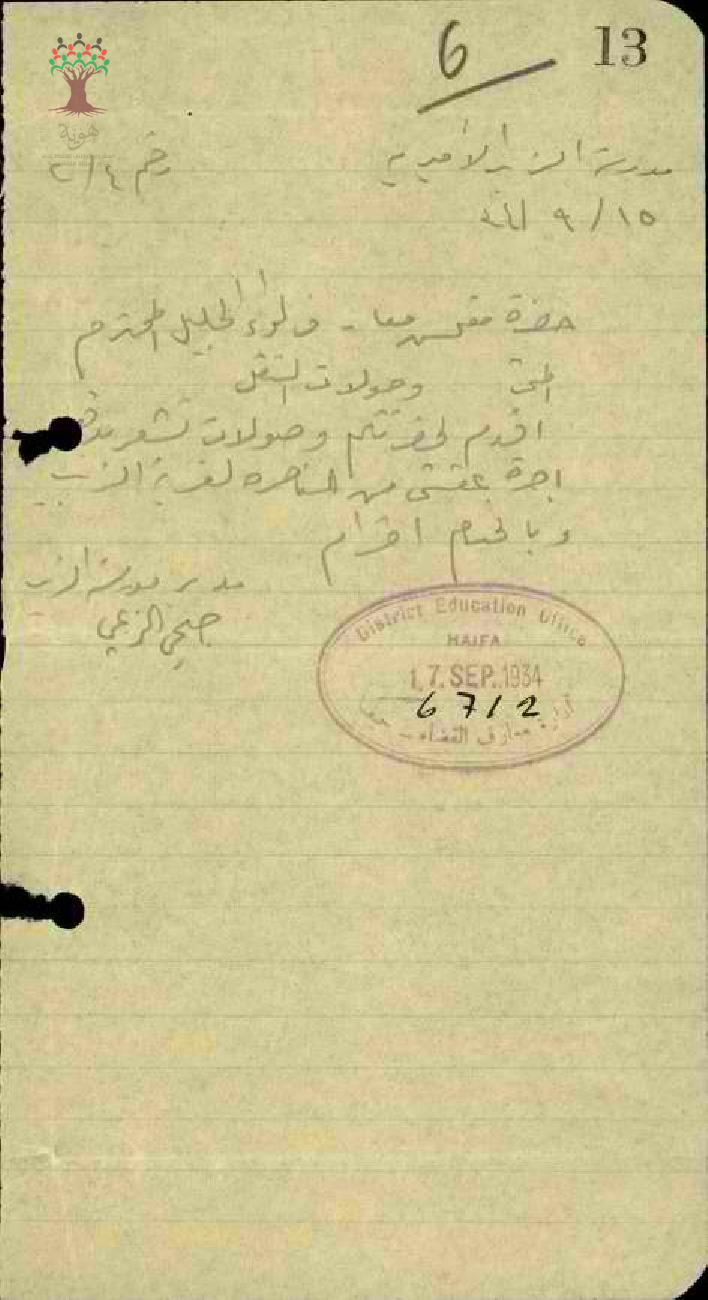 13
6
هوية
مدرسة الزيب الأميرية
رقم ٢/٤
١٥/ ٩
حضرة مفتش معارف لواء الجليل المحترم
وصولات النقل
اقدم لحضرتكم وصولات تشعر
اجرة عفشي من الناصرة لقرية الزيب
وبالختام احترام
مدير مدرسة الزيب
صبحي الزعبي
District Education Office
HAIFA
17. SEP. 1934
6712
ادارة معارف القضاء - حيفا